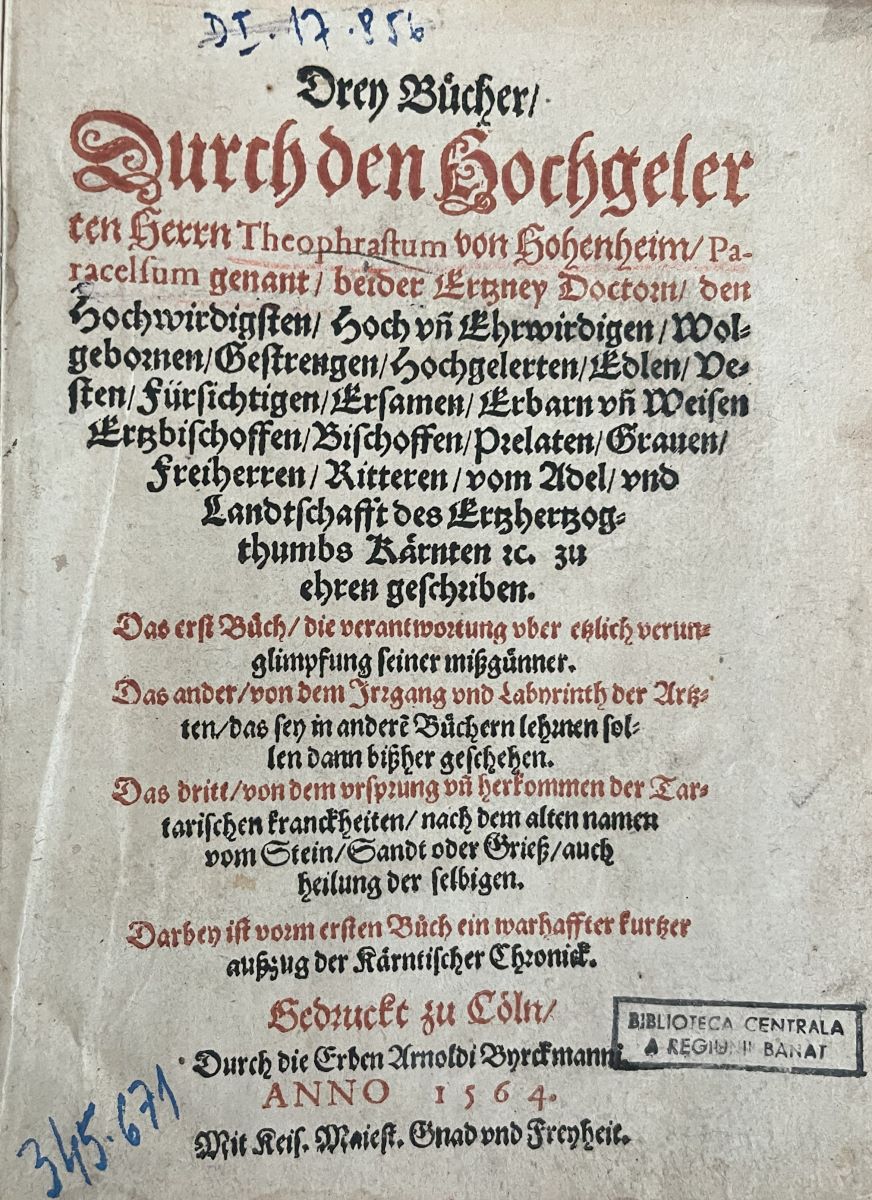 DI.17.856
Drey Bücher/
Durch den Hochgeler
ten Herrn Theophrastum von Hohenheim/ Pa-
racelsum genant/ beider Ertzney Doctorn/ den
Hochwirdigsten/ Hoch vñ Ehrwirdigen/ Wol-
gebornen/ Gestrengen/ Hochgelerten/ Edlen/ Ve-
sten/ Fürsichtigen/ Ersamen/ Erbarn vñ Weisen
Ertzbischoffen/ Bischoffen/ Prelaten/ Grauen/
Freiherren/ Ritteren/ vom Adel/ vnd
Landtschafft des Ertzhertzog-
thumbs Kärnten ꝛc. zu
ehren geschriben.
Das erst Bůch/ die verantwortung vber etzlich verun-
glimpfung seiner mißgünner.
Das ander/ von dem Irrgang vnd Labyrinth der Artz-
ten/ das sey in anderẽ Büchern lehrnen sol-
len dann bißher geschehen.
Das dritt/ von dem vrsprung vñ herkommen der Tar-
tarischen kranckheiten/ nach dem alten namen
vom Stein/ Sandt oder Grieß/ auch
heilung der selbigen.
Darbey ist vorm ersten Bůch ein warhaffter kurtzer
außzug der Kärntischer Chronick.
Gedruckt zu Cöln/
Durch die Erben Arnoldi Byrckmanni.
ANNO 1564.
Mit Keis. Maiest. Gnad vnd Freyheit.
BIBLIOTECA CENTRALA
A REGIUNII BANAT
345.671